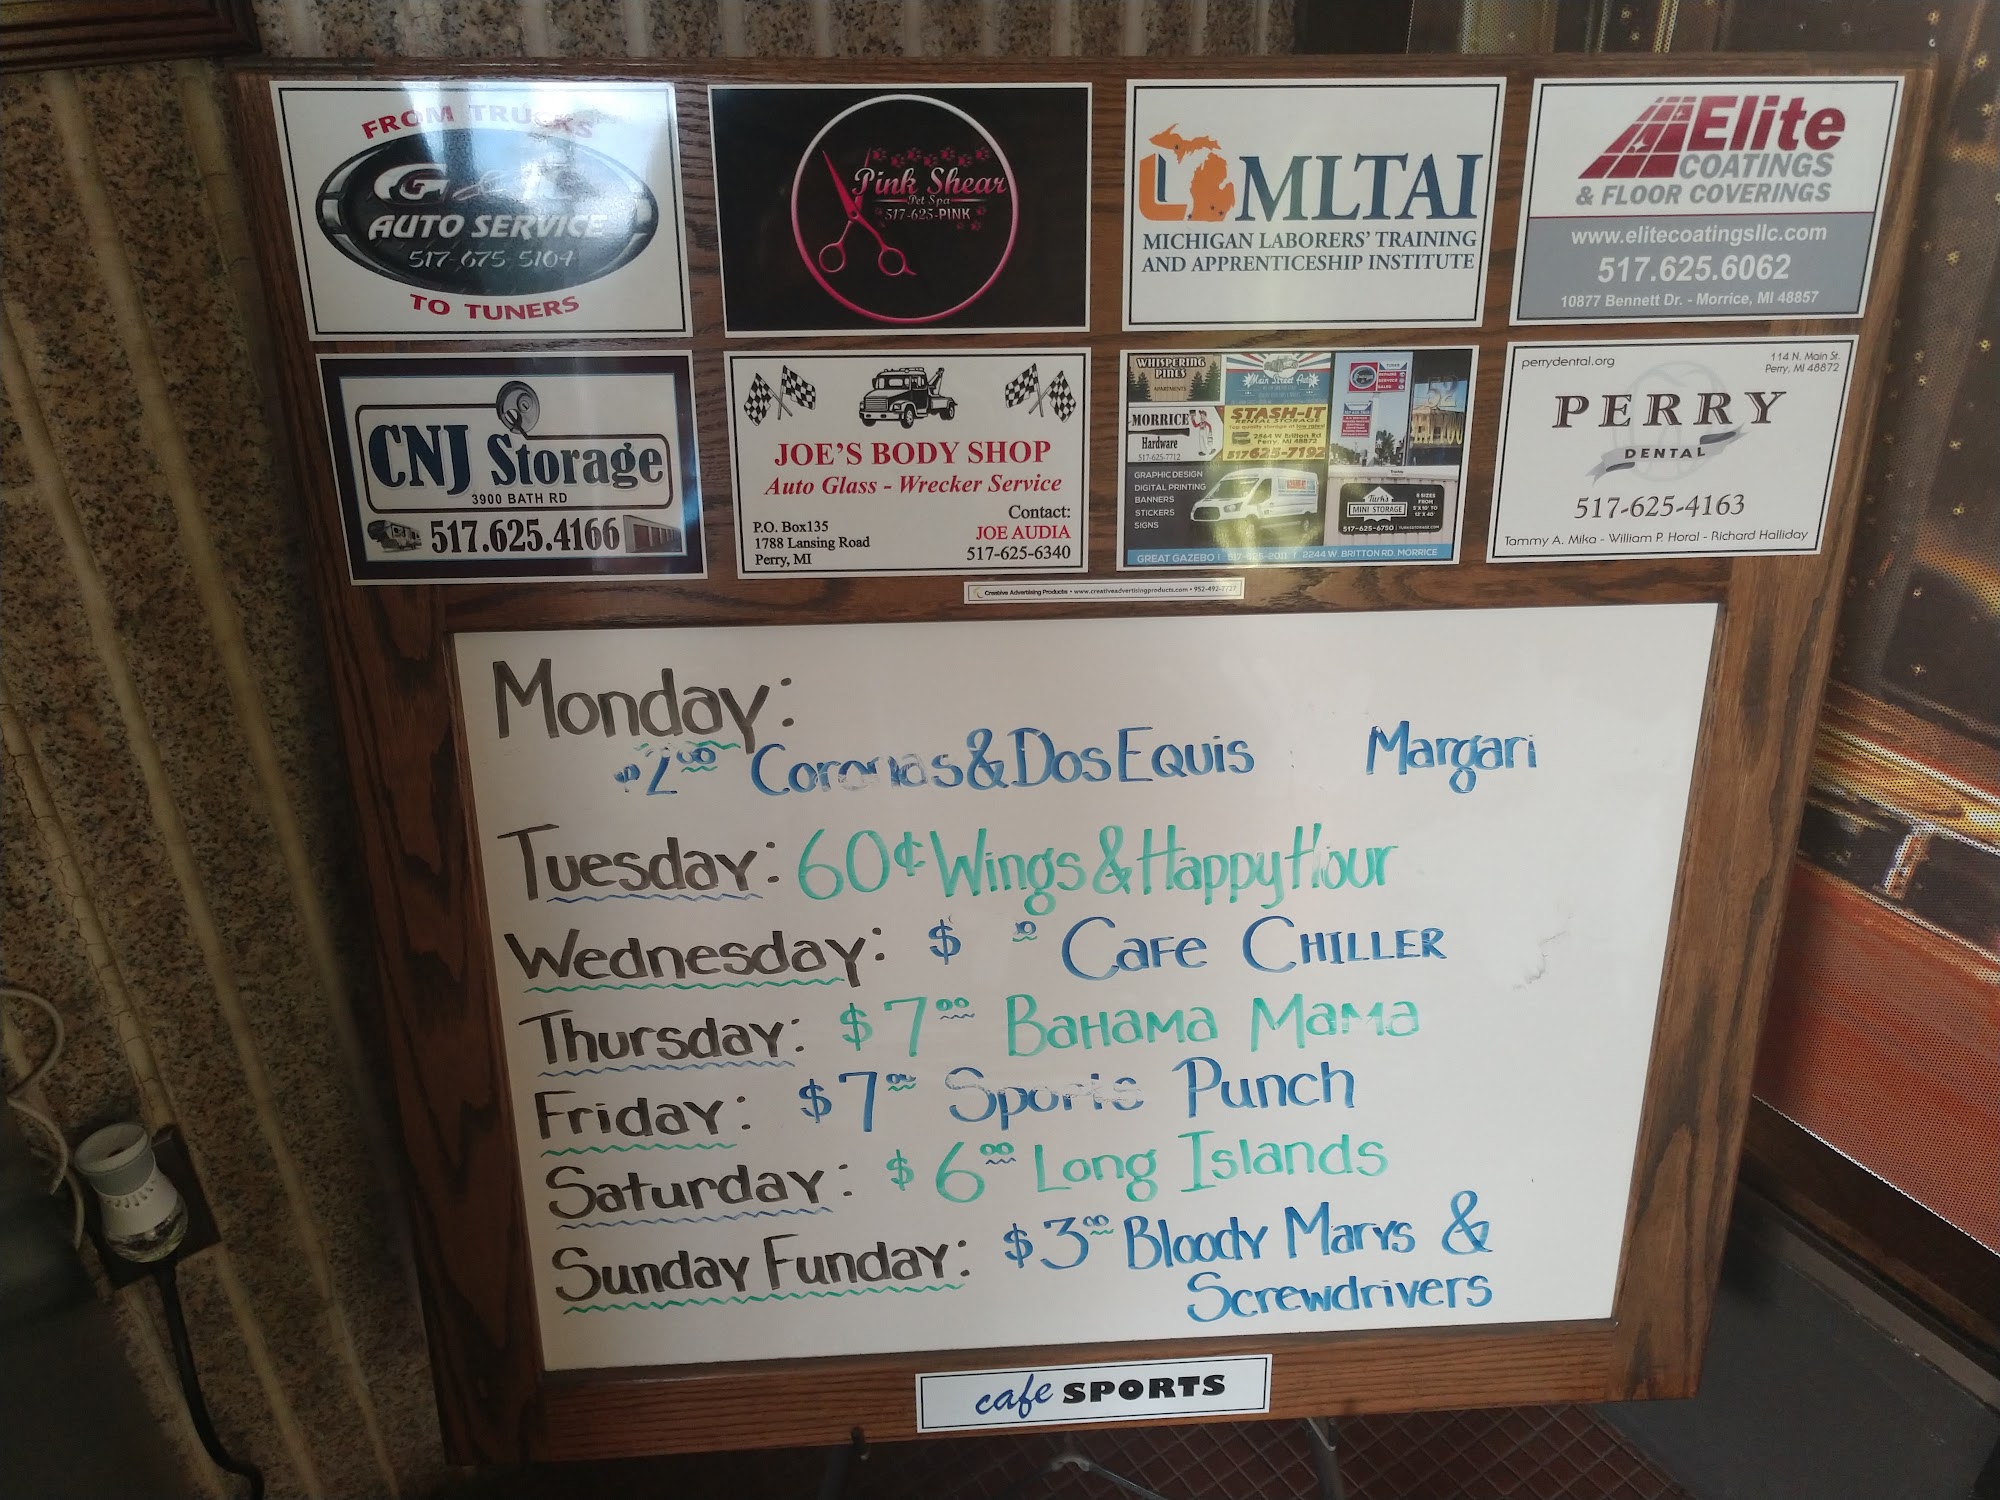 FROM TRUCKS
AUTO SERVICE
517-675-5104
TO TUNERS
Pink Shear
Pet Spa
517-625-PINK
MLTAI
MICHIGAN LABORERS' TRAINING
AND APPRENTICESHIP INSTITUTE
Elite
COATINGS
& FLOOR COVERINGS
www.elitecoatingsllc.com
517.625.6062
10877 Bennett Dr. - Morrice, MI 48857
CNJ Storage
3900 BATH RD
517.625.4166
JOE'S BODY SHOP
Auto Glass - Wrecker Service
P.O. Box135
1788 Lansing Road
Perry, MI
Contact:
JOE AUDIA
517-625-6340
WHISPERING
PINES
APARTMENTS
Main Street
MORRICE
Hardware
517-625-7712
STASH-IT
RENTAL STORAGE
2564 W Britton Rd
Perry, MI 48872
517 625-7192
GRAPHIC DESIGN
DIGITAL PRINTING
BANNERS
STICKERS
SIGNS
Turk's
MINI STORAGE
517-625-6750
GREAT GAZEBO | 517-625-2011 | 2244 W. BRITTON RD. MORRICE
perrydental.org
114 N. Main St.
Perry, MI 48872
PERRY
DENTAL
517-625-4163
Tammy A. Mika - William P. Horal - Richard Halliday
Creative Advertising Products • www.creativeadvertisingproducts.com • 952-492-7729
Monday:
$2.00 Coronas & Dos Equis Margari
Tuesday: 60¢ Wings & Happy Hour
Wednesday: $ Cafe Chiller
Thursday: $7.00 Bahama Mama
Friday: $7.00 Sports Punch
Saturday: $6.00 Long Islands
Sunday Funday: $3.00 Bloody Marys &
Screwdrivers
cafe SPORTS